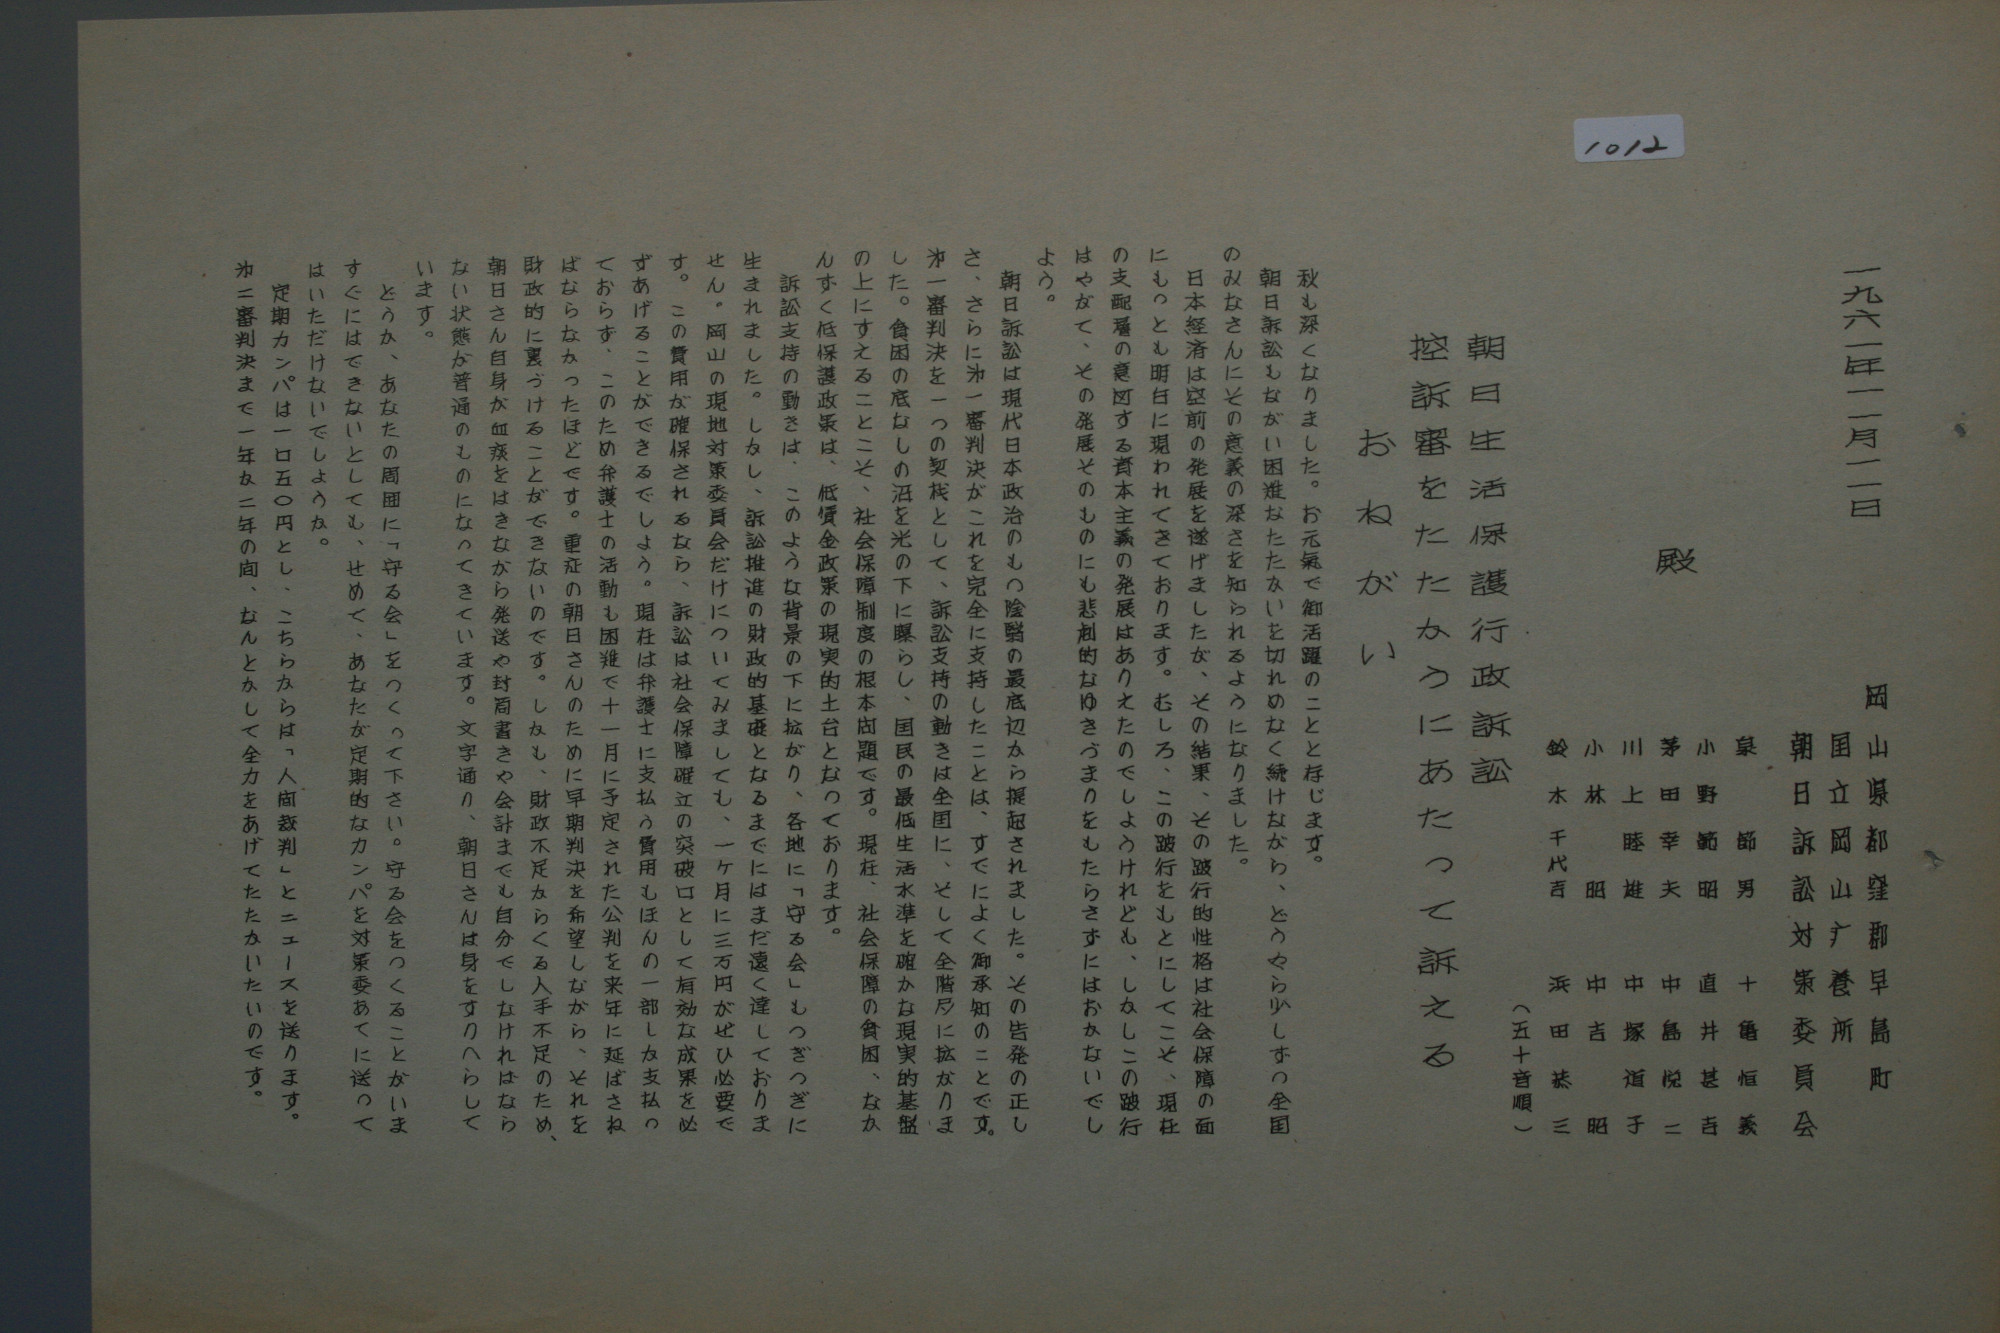 1012
一九六一年一一月一一日
岡山県都窪郡早島町
国立岡山療養所
朝日訴訟対策委員会
泉節男 十亀恒義
小野範昭 直井甚吉
茅田幸夫 中島悦二
川上睦雄 中塚道子
小林昭 中吉昭
鈴木千代吉 浜田恭三
（五十音順）
殿
朝日生活保護行政訴訟
控訴審をたたかうにあたって訴える
おねがい
秋も深くなりました。お元氣で御活躍のことと存じます。
朝日訴訟もながい困難なたたかいを切れめなく続けながら、どうやら少しずつ全国
のみなさんにその意義の深さを知られるようになりました。
日本経済は空前の発展を遂げましたが、その結果、その跛行的性格は社会保障の面
にもっとも明白に現われてきております。むしろ、この跛行をもとにしてこそ、現在
の支配層の意図する資本主義の発展はありえたのでしようけれども、しかしこの跛行
はやがて、その発展そのものにも悲劇的なゆきづまりをもたらさずにはおかないでし
よう。
朝日訴訟は現代日本政治のもつ陰翳の最底辺から提起されました。その告発の正し
さ、さらに㐧一審判決がこれを完全に支持したことは、すでによく御承知のことです。
㐧一審判決を一つの契机として、訴訟支持の動きは全国に、そして全階層に拡がりま
した。貧困の底なしの沼を光の下に曝らし、国民の最低生活水準を確かな現実的基盤
の上にすえることこそ、社会保障制度の根本问題です。現在、社会保障の貧困、なか
んずく低保護政策は、低賃金政策の現実的土台となっております。
訴訟支持の動きは、このような背景の下に拡がり、各地に「守る会」もつぎつぎに
生まれました。しかし、訴訟推進の財政的基礎となるまでにはまだ遠く達しておりま
せん。岡山の現地対策委員会だけについてみましても、一ケ月に三万円がぜひ必要で
す。この費用が確保されるなら、訴訟は社会保障確立の突破口として有効な成果を必
ずあげることができるでしよう。現在は弁護士に支払う費用もほんの一部しか支払っ
ておらず、このため弁護士の活動も困難で十一月に予定された公判を来年に延ばさね
ばならなかったほどです。重症の朝日さんのために早期判決を希望しながら、それを
財政的に裏づけることができないのです。しかも、財政不足からくる人手不足のため、
朝日さん自身が血痰をはきながら発送や封筒書きや会計までも自分でしなければなら
ない状態が普通のものになってきています。文字通り、朝日さんは身をすりへらして
います。
どうか、あなたの周囲に「守る会」をつくって下さい。守る会をつくることがいま
すぐにはできないとしても、せめて、あなたが定期的なカンパを対策委あてに送って
はいただけないでしようか。
定期カンパは一口五〇円とし、こちらからは「人间裁判」とニュースを送ります。
㐧二審判決まで一年か二年の间、なんとかして全力をあげてたたかいたいのです。